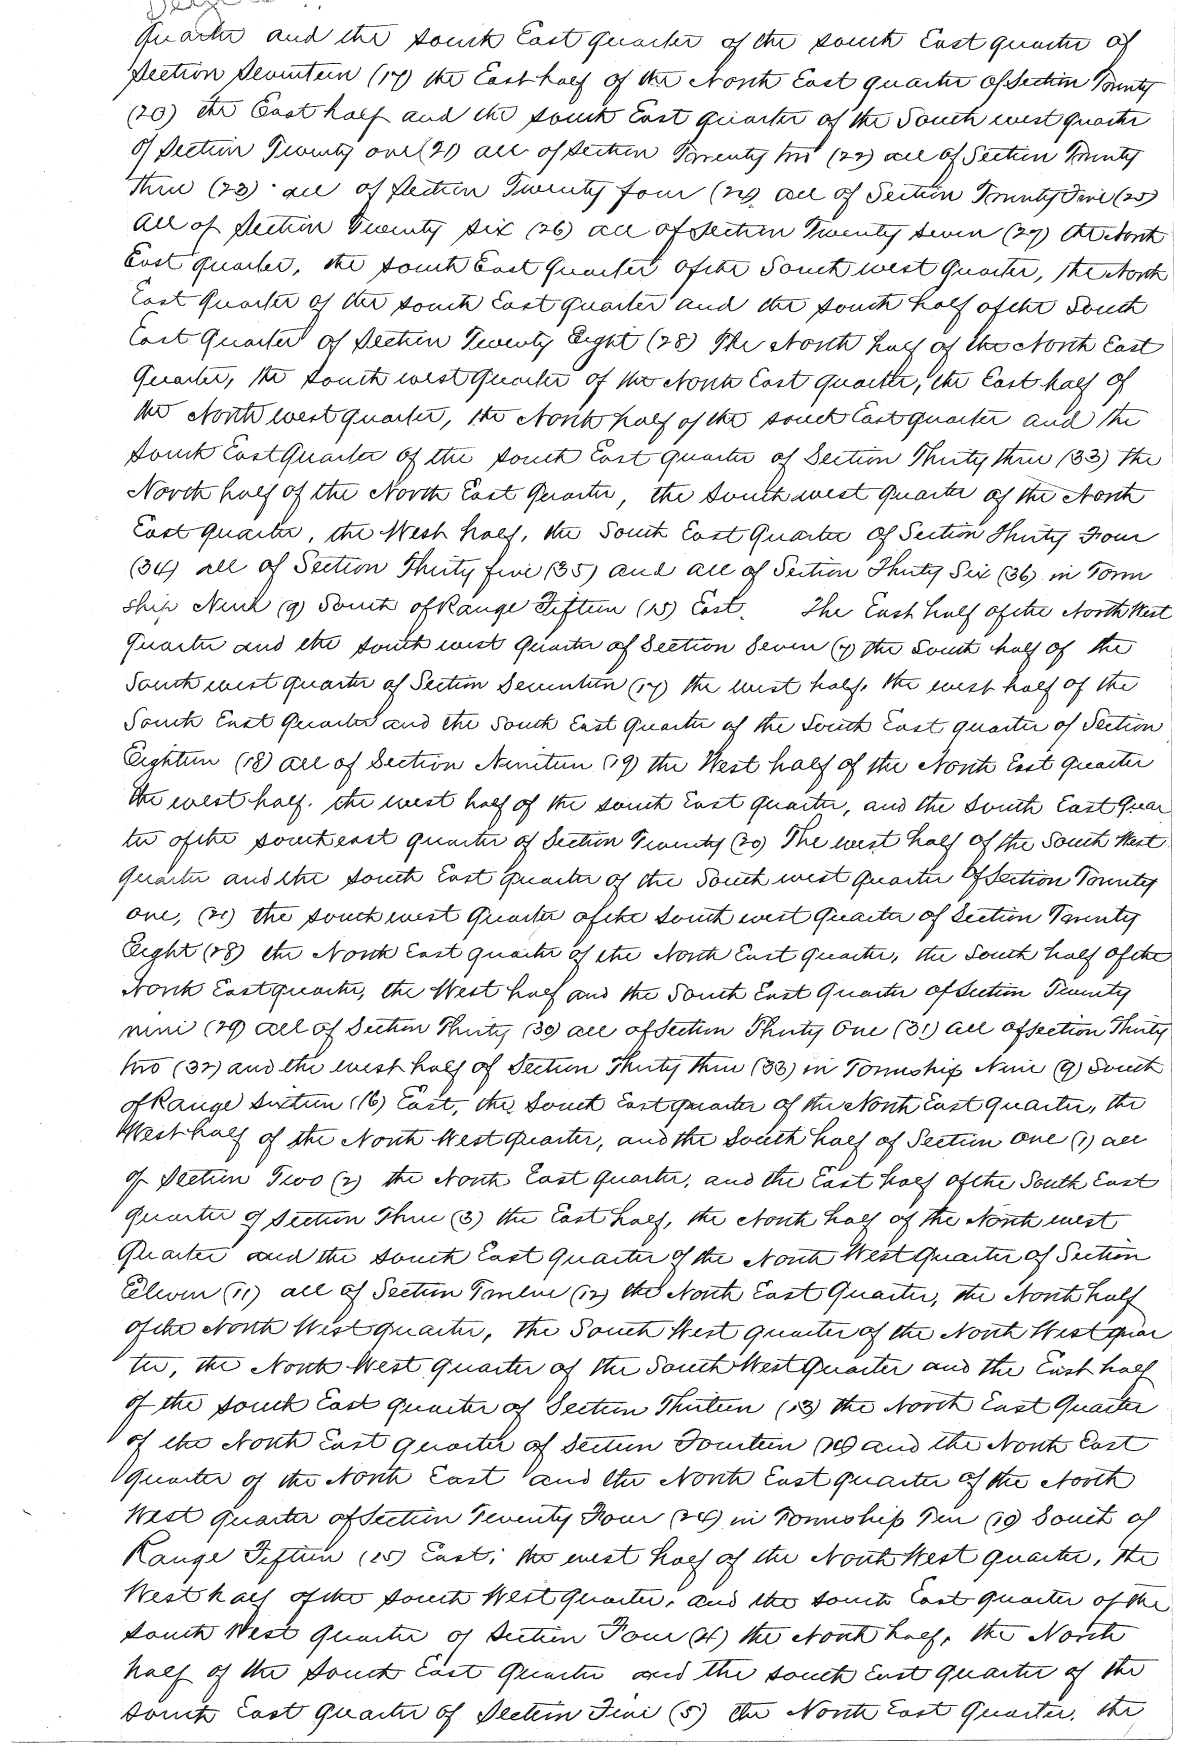 Quarter and the South East quarter of the South East quarter of
Section Seventeen (17) the East half of the North East quarter of Section Twenty
(20) the East half and the South East quarter of the South west quarter
of Section Twenty one (21) all of Section Twenty two (22) all of Section Twenty
three (23) all of Section Twenty four (24) all of Section Twenty Five (25)
All of Section Twenty Six (26) all of Section Twenty Seven (27) the North
East quarter, the South East Quarter of the South west Quarter, the North
East Quarter of the South East quarter and the South half of the South
East Quarter of Section Twenty Eight (28) The North half of the North East
Quarter, the South west quarter of the North East quarter, the East half of
the North west quarter, the North half of the South East quarter and the
South East Quarter of the South East quarter of Section Thirty three (33) the
North half of the North East Quarter, the South west quarter of the North
East quarter, the West half, the South East Quarter of Section Thirty Four
(34) all of Section Thirty five (35) and all of Section Thirty Six (36) in Town
ship Nine (9) South of Range Fifteen (15) East. The East half of the North West
Quarter and the South west quarter of Section Seven (7) the South half of the
South west quarter of Section Seventeen (17) the west half, the west half of the
South East Quarter and the South East Quarter of the South East quarter of Section
Eighteen (18) all of Section Nineteen (19) the West half of the North East quarter
the west half. the west half of the South East quarter, and the South East Quar
ter of the south east quarter of Section Twenty (20) The west half of the South West
quarter and the South East quarter of the South west quarter of Section Twenty
one, (21) the South west Quarter of the South west quarter of Section Twenty
Eight (28) the North East quarter of the North East quarter, the South half of the
North East quarter, the West half and the South East Quarter of Section Twenty
nine (29) all of Section Thirty (30) all of Section Thirty One (31) all of section Thirty
two (32) and the west half of Section Thirty three (33) in Township Nine (9) South
of Range Sixteen (16) East, the South East quarter of the North East quarter, the
West half of the North West quarter, and the South half of Section One (1) all
of Section Two (2) the North East Quarter, and the East half of the South East
quarter of Section Three (3) the East half, the North half of the North west
Quarter and the South East quarter of the North West Quarter of Section
Eleven (11) all of Section Twelve (12) the North East Quarter, the North half
of the North West quarter, the South West quarter of the North West quar
ter, the North West quarter of the South West Quarter and the East half
of the South East quarter of Section Thirteen (13) the North East Quarter
of the North East quarter of Section Fourteen (14) and the North East
quarter of the North East and the North East quarter of the North
West quarter of Section Twenty Four (24) in Township Ten (10) South of
Range Fifteen (15) East; the west half of the North West quarter, the
West half of the South West quarter, and the South East quarter of the
South West quarter of Section Four (4) the North half, the North
half of the South East Quarter and the South East quarter of the
South East Quarter of Section Five (5) the North East Quarter, the